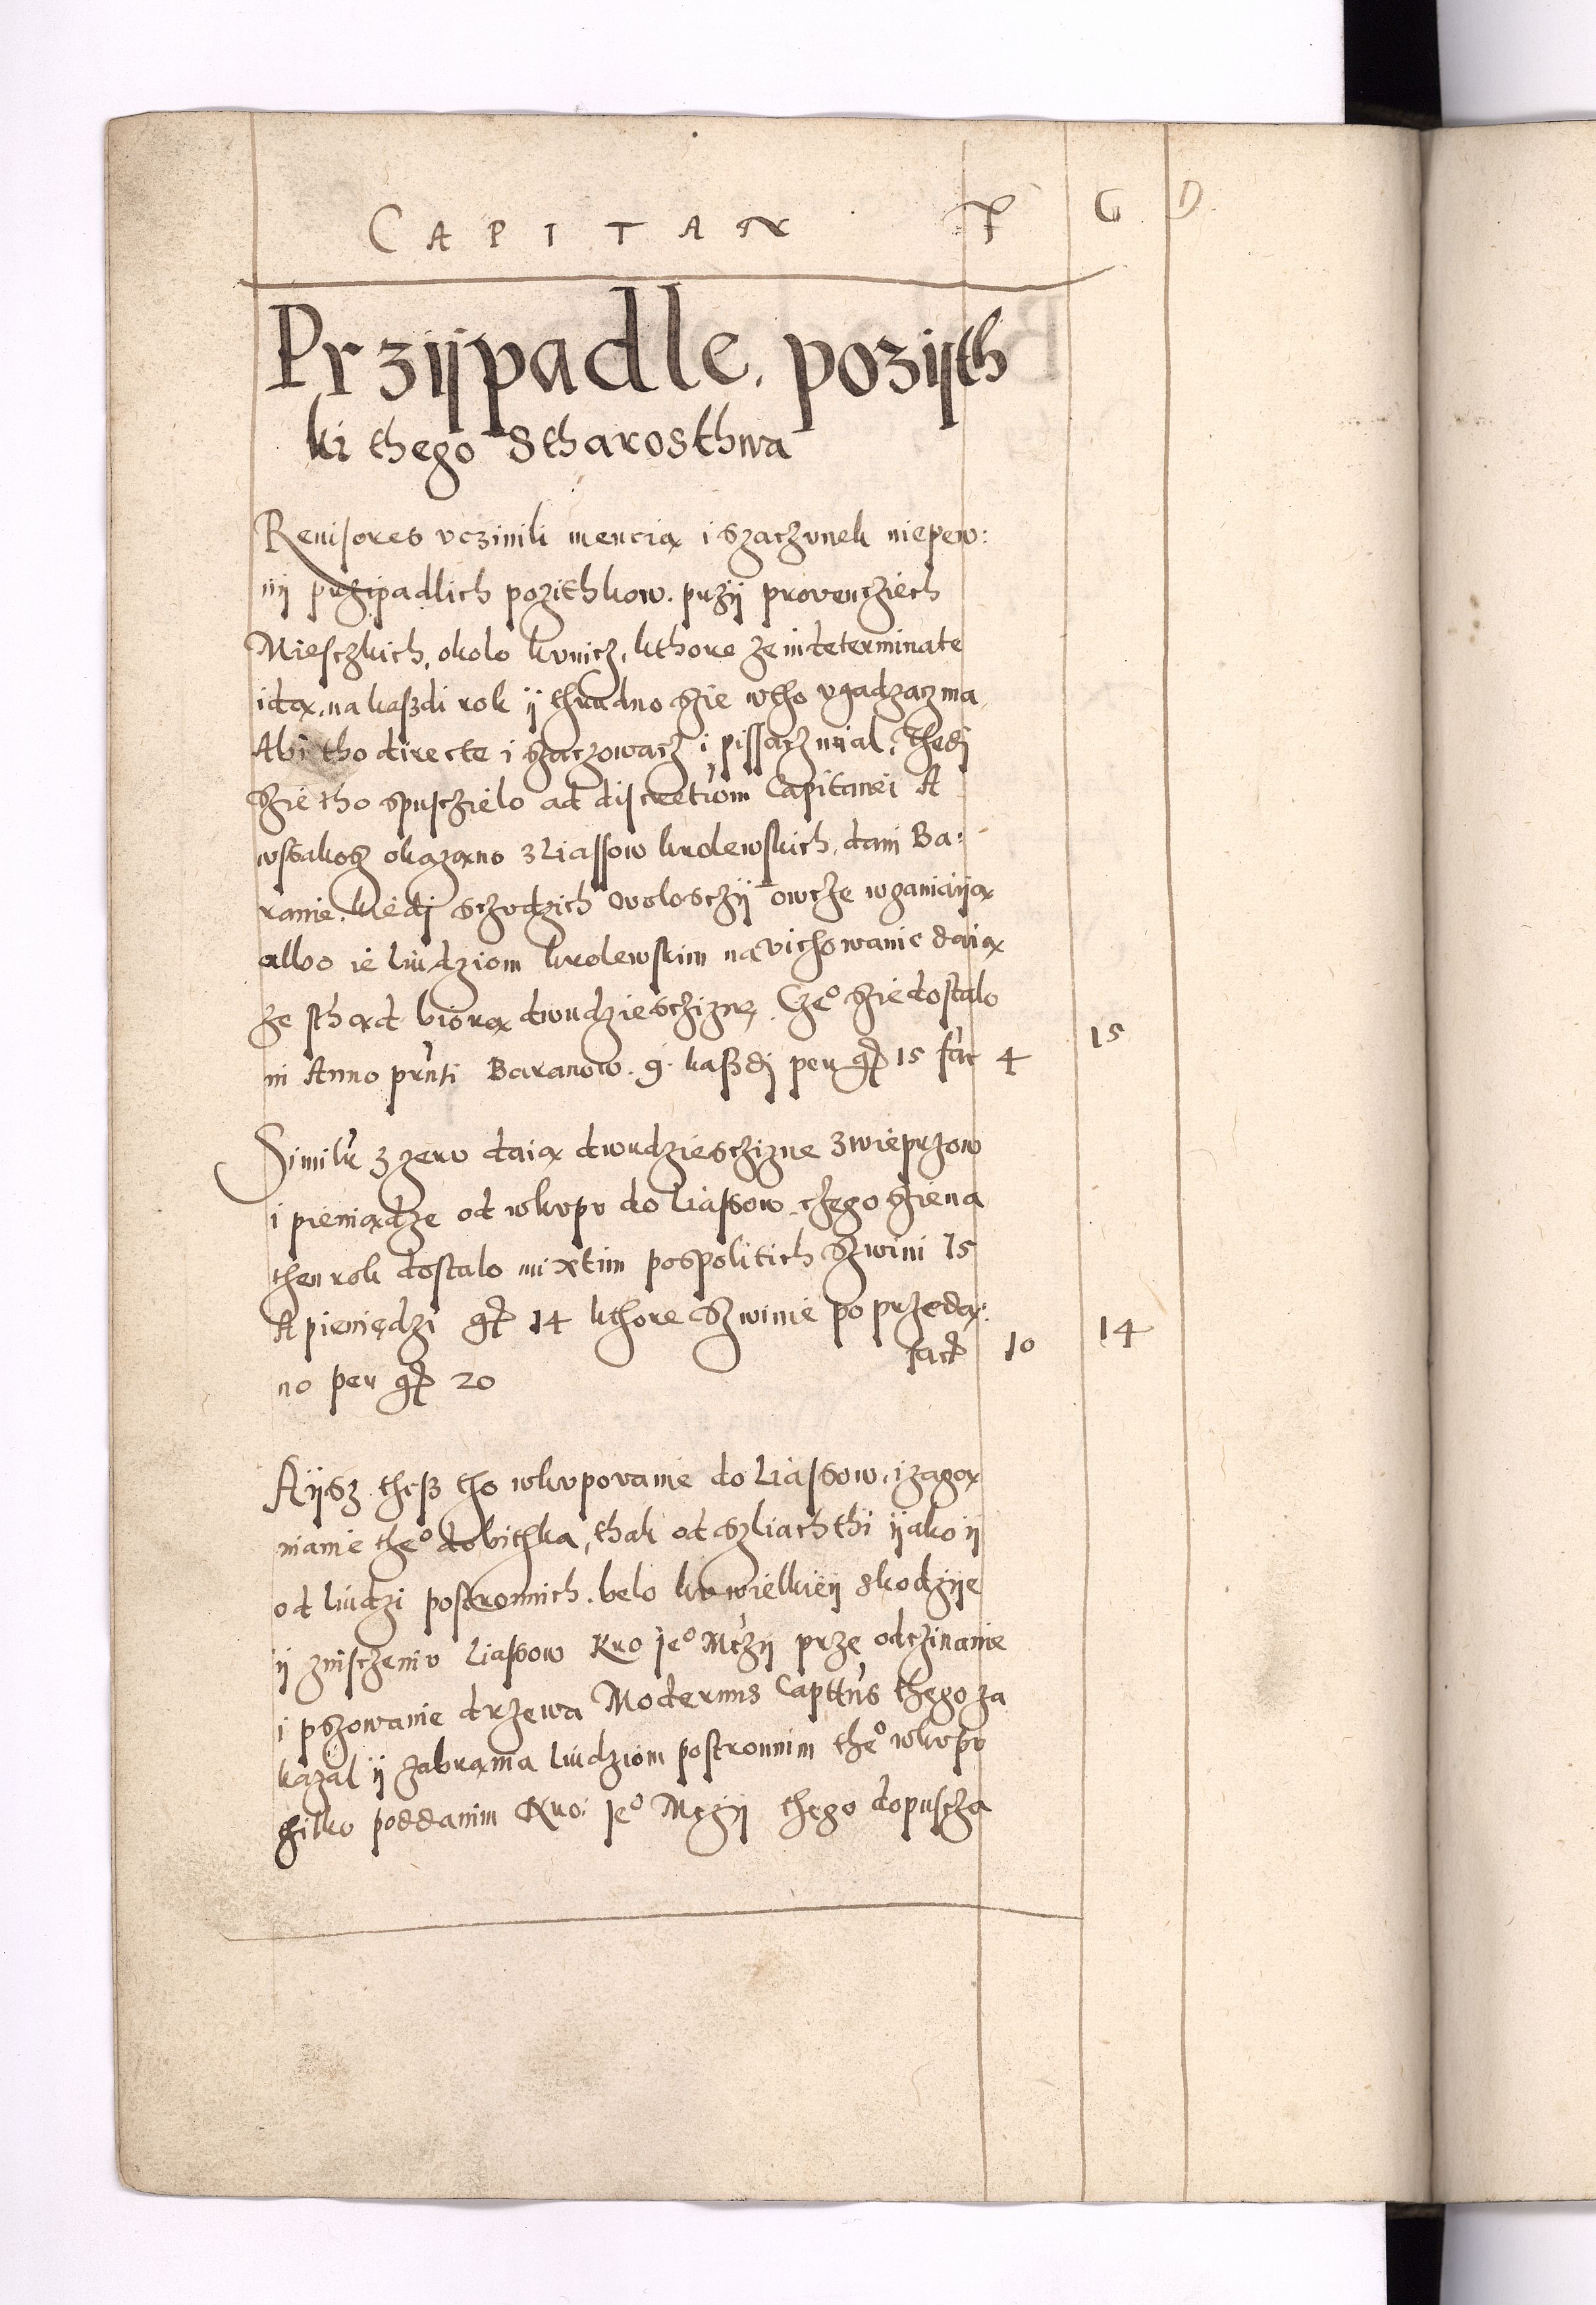 CAPITAN F G D
Przÿpadle. pozÿth
ki thego Stharosthwa
Reuisores vczinili mencią i szaczunek niepew:
nÿ przipadlich pozithkow. przÿ provencziech
Miesczkich, okolo kunicz, kthore ze indeterminate
idą, na kaßdi rok ÿ thrudno szie wtho vgadzacz ma
Abi tho directe i szaczowacz i pissacz mial, Thedj
szie tho spusczielo ad discretiom Capitanei A
wssakoz okazano z liassow krolewskich, dani Ba:
ranie. kiedj sczudzich woloszczÿ owcze wganiaÿą
albo ie liudziom krolewskim na vichowanie daią
ze sthąd biorą dwudziesczizne. Czeº szie dostalo
in Anno prnti Baranow. 9. kaßdj per gł 15 fac 4 15
Similr z zeru daią dwudziesczizne z wieprzow
i pieniądze od wkupu do liassow czego szie na
then rok dostalo mixtim pospolitich szwini 15
A pieniędzi gł 14 kthore szwinie po przeda:
no per gł 20 fact 10 14
Aÿsz theß tho wkupovanie do liassow, i zagą
nianie theº dobithka, thak od szliachthi ÿako ÿ
od liudzi postronnich. belo ku wielkieÿ skodzÿe
ÿ znisczeniu liassow Kro Jeº Mczÿ prze odczinanie
i pszowanie drzewa Modernus Capttus thego za
kazal ÿ zabrania liudziom postronnim theº wkupu
thilko poddanim Kro: Jeº Mczÿ thego dopuscza